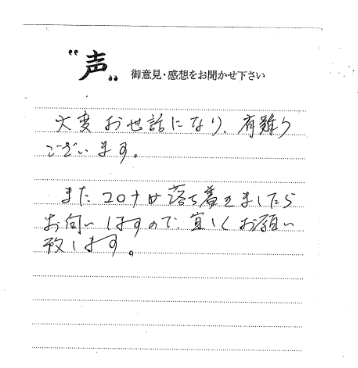 "声"
御意見・感想をお聞かせ下さい
大変お世話になり、有難う
ございます。
またコロナは落ち着きましたら
お伺いしますので、宜しくお願い
致します。